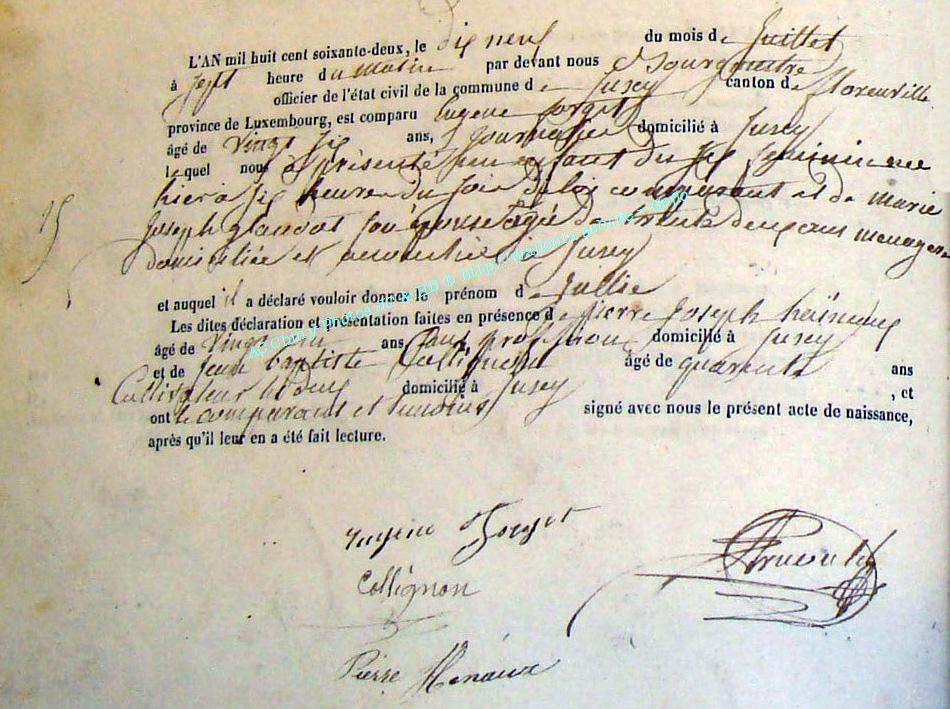 L'AN mil huit cent soixante-deux, le dix neuf du mois de Juillet
à Sept heure du matin par devant nous Bourgmestre
officier de l'état civil de la commune de Jusey canton de Florenville
province de Luxembourg, est comparu Eugene Forget
âgé de Vingt six ans, Journalier domicilié à Jusey
lequel nous a présenté un enfant du sexe feminin née
hier à six heure du soir de lui comparant et de marie
Joseph son épouse agée de trente deux ans menagere
domiciliée et à Jusey
15
et auquel il a déclaré vouloir donner le prénom de Jullie
Les dites déclaration et présentation faites en présence de pierre Joseph
âgé de Vingt ans Sans profession domicilié à Jusey
et de Jean baptiste Collignon âgé de quarante ans
Cultivateur domicilié à Jusey , et
ont le comparant et temoins signé avec nous le présent acte de naissance,
après qu'il leur en a été fait lecture.
Eugène Forget
Collignon
Pierre Henaux